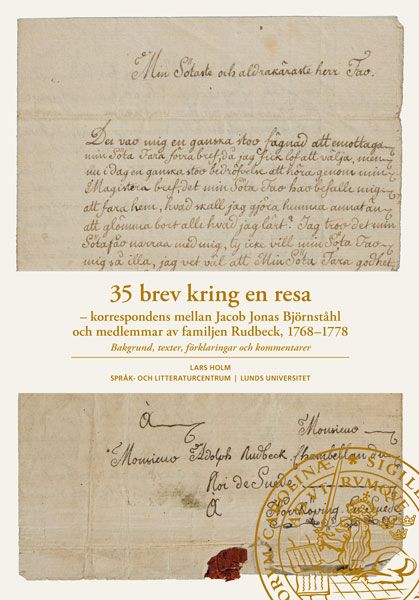 Min Sötaste och aldrakäraste herr Far.
Det var mig en ganska stor fägnad att emottaga
min Söta Fars förra bref, då jag fick lof att välja, men
nu i dag en ganska stor bedröfvelse att höra genom min
Magisters bref, det min Söta Far har befalt mig
att fara hem, hvad skall jag gjöra hemma annat än
att glömma bort alt hvad jag lärt? Jag tror det min
Söta far narras med mig, ty icke vill min Söta Far
mig så illa, jag vet väl att Min Söta Fars godhet
35 brev kring en resa
– korrespondens mellan Jacob Jonas Björnståhl
och medlemmar av familjen Rudbeck, 1768–1778
Bakgrund, texter, förklaringar och kommentarer
LARS HOLM
SPRÅK- OCH LITTERATURCENTRUM | LUNDS UNIVERSITET
À
Monsieur
Monsieur Adolph Rudbeck, Chambellan du
Roi de Suede
À
Norrköping en Suede
CAROLINÆ SIGILL
VTRVMQVE